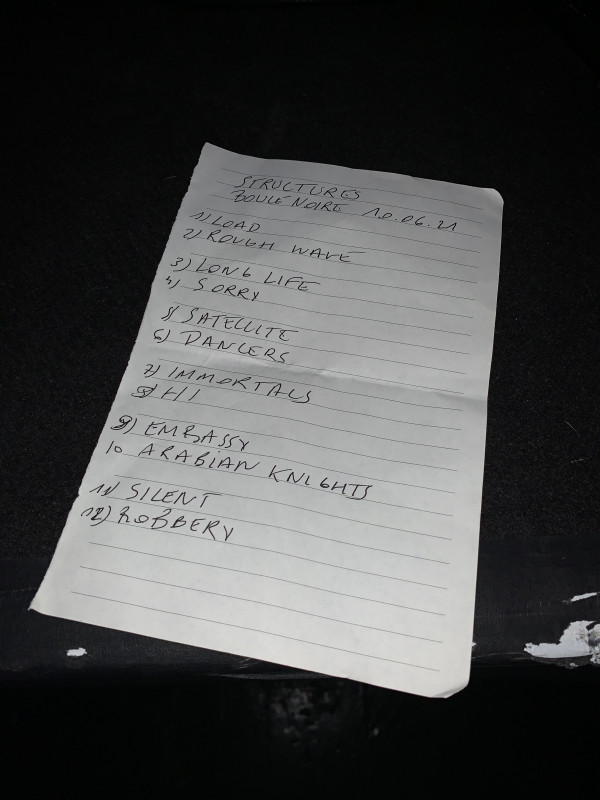 STRUCTURES
BOULE NOIRE 10.06.21
1) LOAD
2) ROUGH WAVE
3) LONG LIFE
4) SORRY
5) SATELLITE
6) DANCERS
7) IMMORTALS
8) HI
9) EMBASSY
10 ARABIAN KNIGHTS
11) SILENT
12) ROBBERY